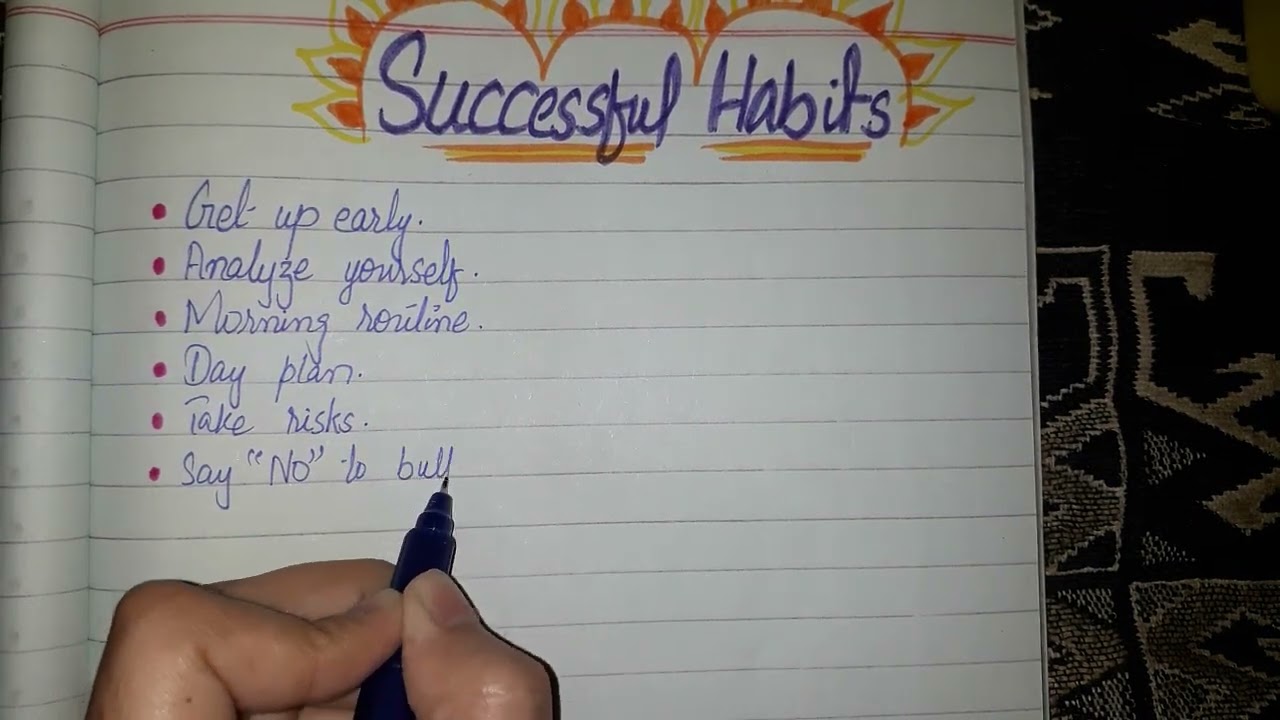 Successful Habits
• Get up early.
• Analyze yourself.
• Morning routine.
• Day plan.
• Take risks.
• Say "No" to bull